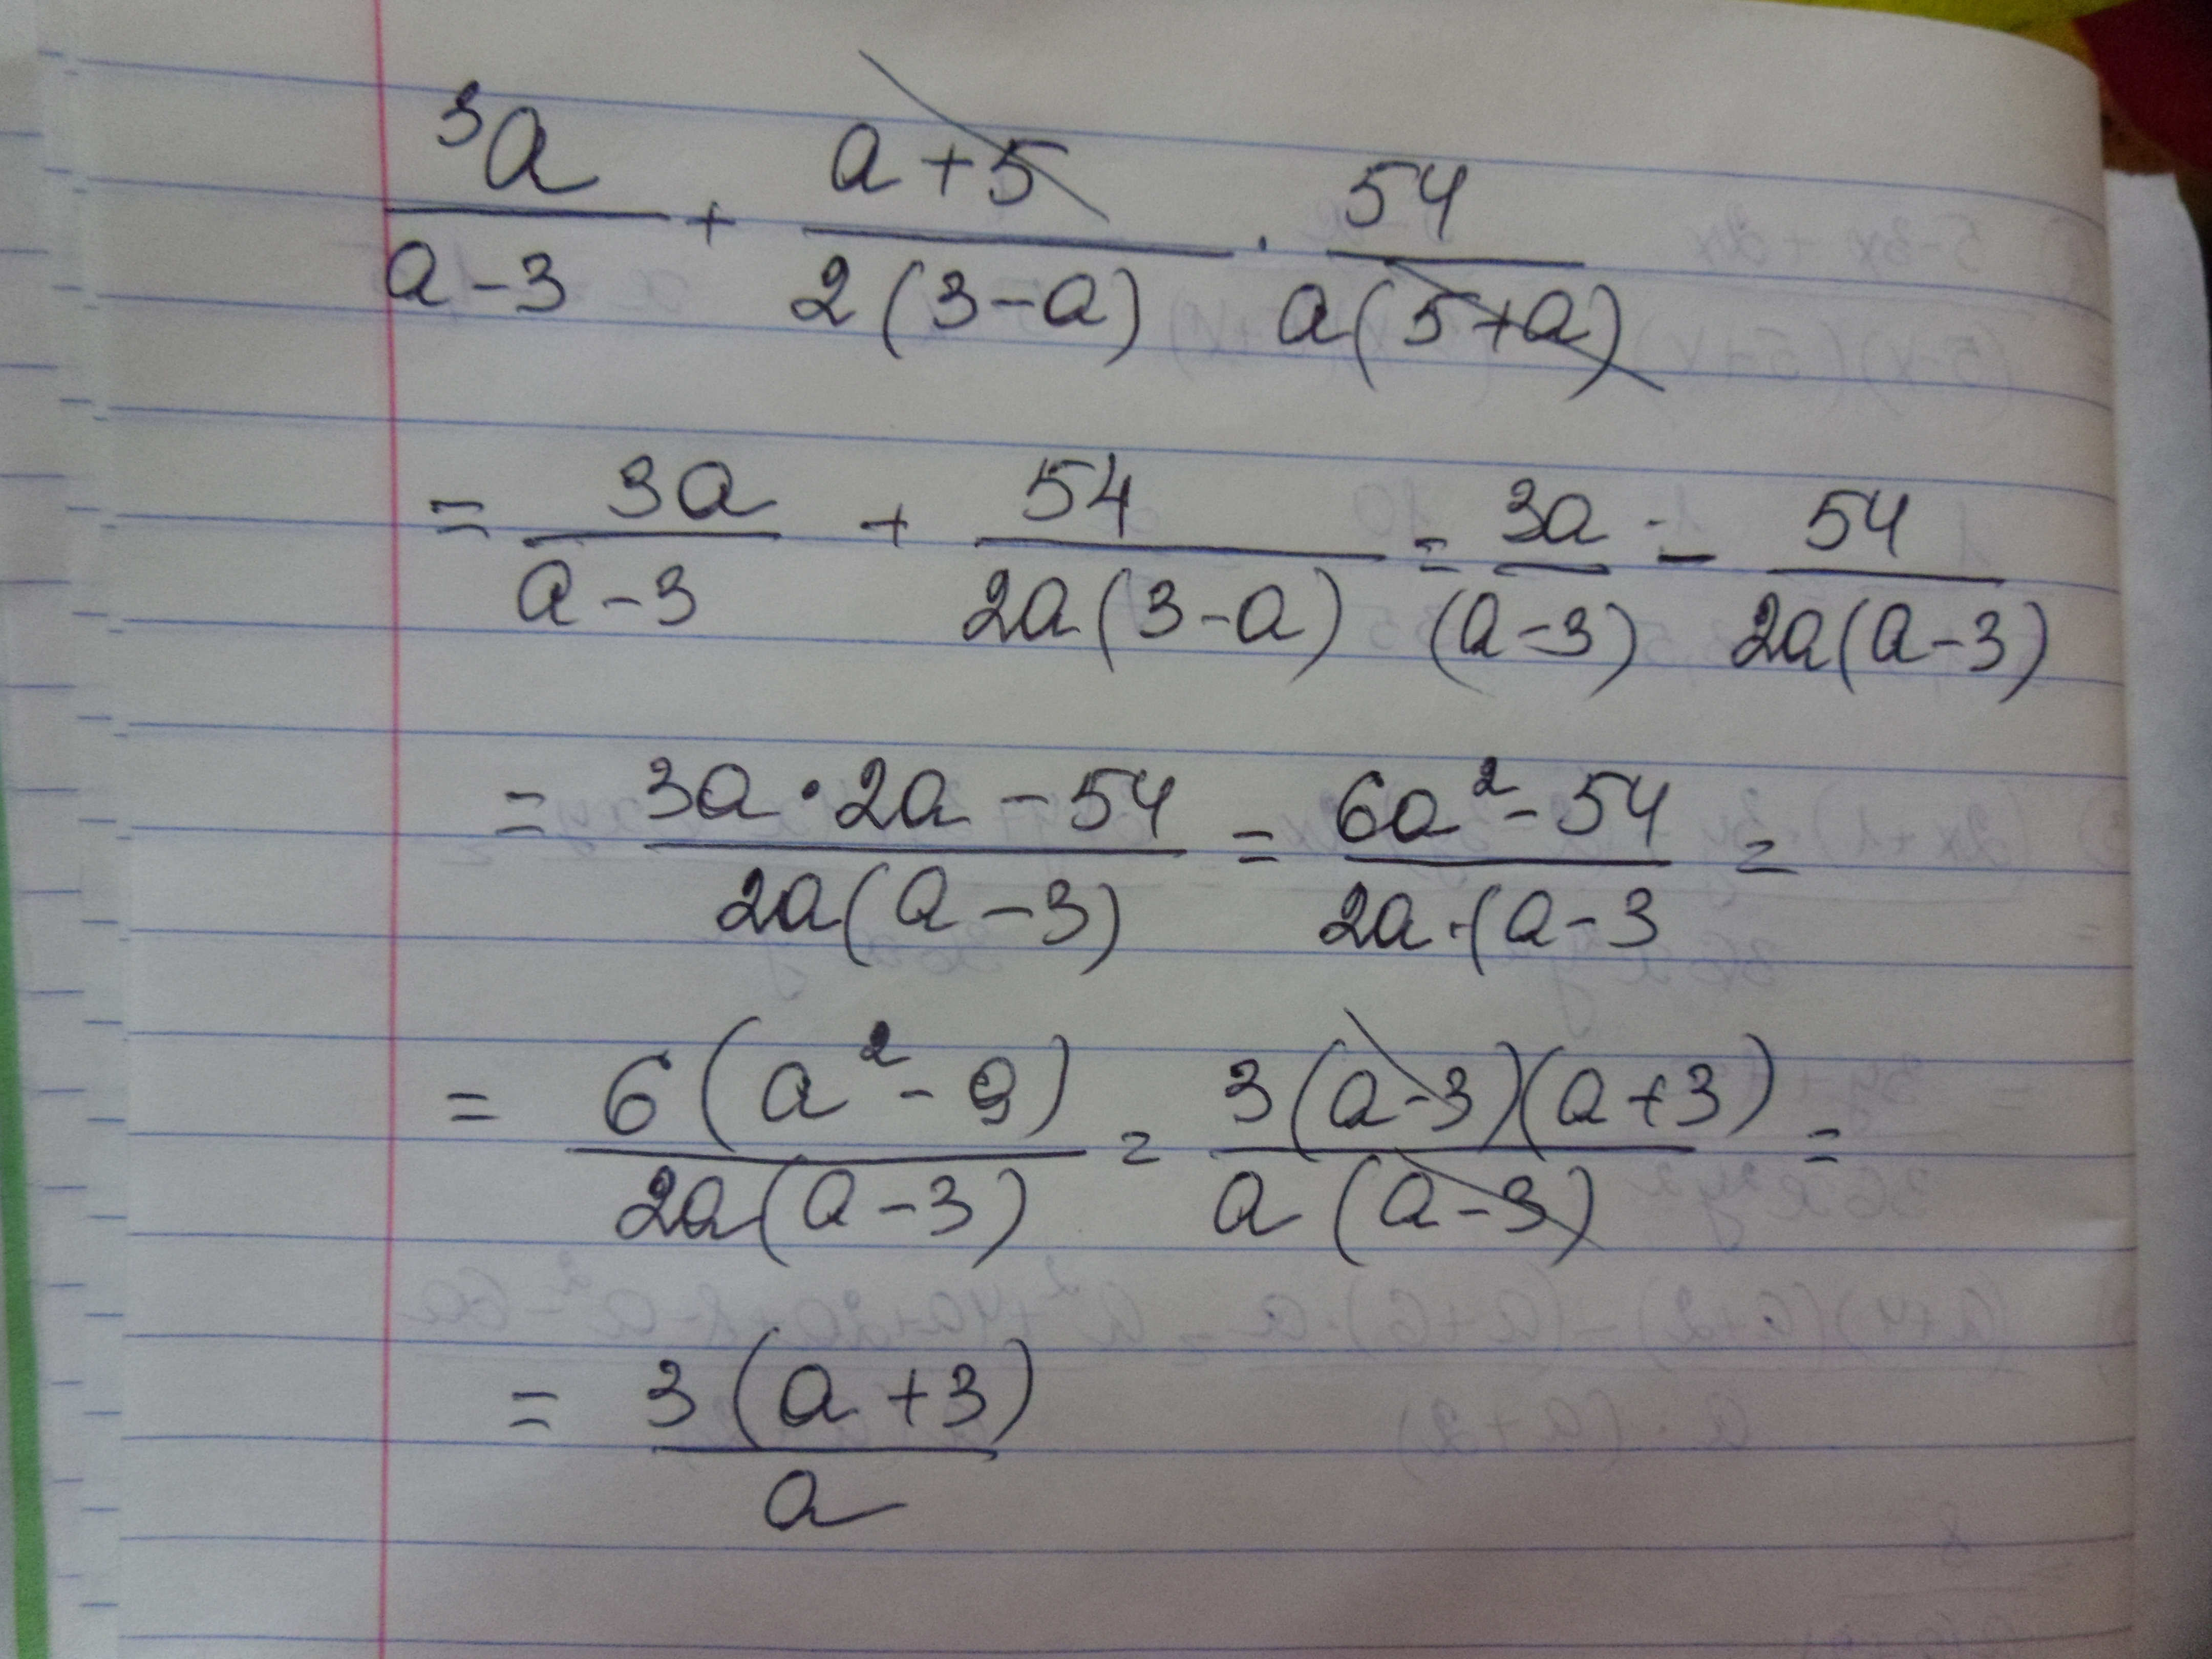 3a/(a-3) + (a+5)/(2(3-a)) · 54/(a(5+a))
= 3a/(a-3) + 54/(2a(3-a)) = 3a/((a-3)) - 54/(2a(a-3))
= (3a·2a-54)/(2a(a-3)) = (6a²-54)/(2a·(a-3 =
= 6(a²-9)/(2a(a-3)) = 3(a-3)(a+3)/(a(a-3)) =
= 3(a+3)/a